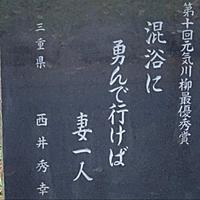 第十回元気川柳最優秀賞
混浴に
勇んで行けば
妻一人
三重県　西井秀幸